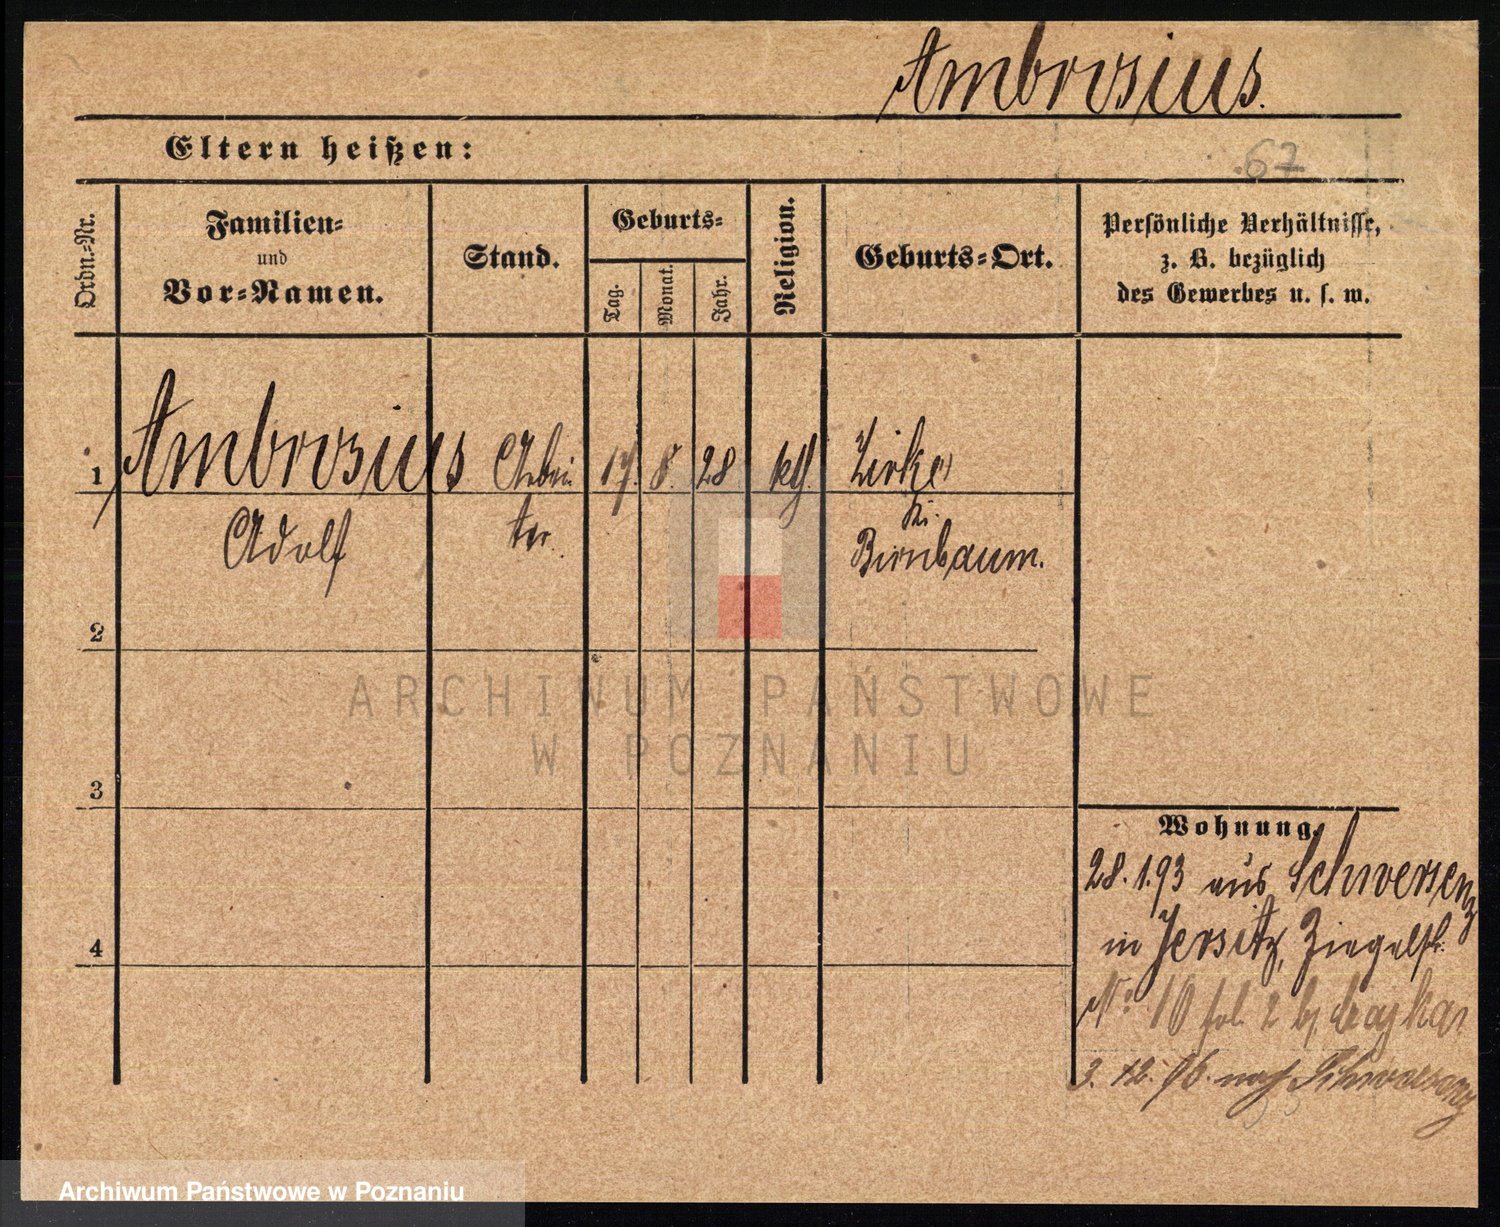 Ambrosius.
Eltern heißen:
67
Ordn.-Nr.
Familien-
und
Vor-Namen.
Stand.
Geburts-
Tag.
Monat.
Jahr.
Religion.
Geburts-Ort.
Persönliche Verhältnisse,
z. B. bezüglich
des Gewerbes u. s. w.
1
Ambrosius
Adolf
Arbei-
ter
17. 8. 28
kth.
Zirke
bei
Birnbaum.
2
3
4
ARCHIWUM PAŃSTWOWE
W POZNANIU
Wohnung.
28.1.93 aus Schwersenz
in Jersitz, Ziegelstr.
No. 10
3. 12. 96. nach Schwersenz
Archiwum Państwowe w Poznaniu